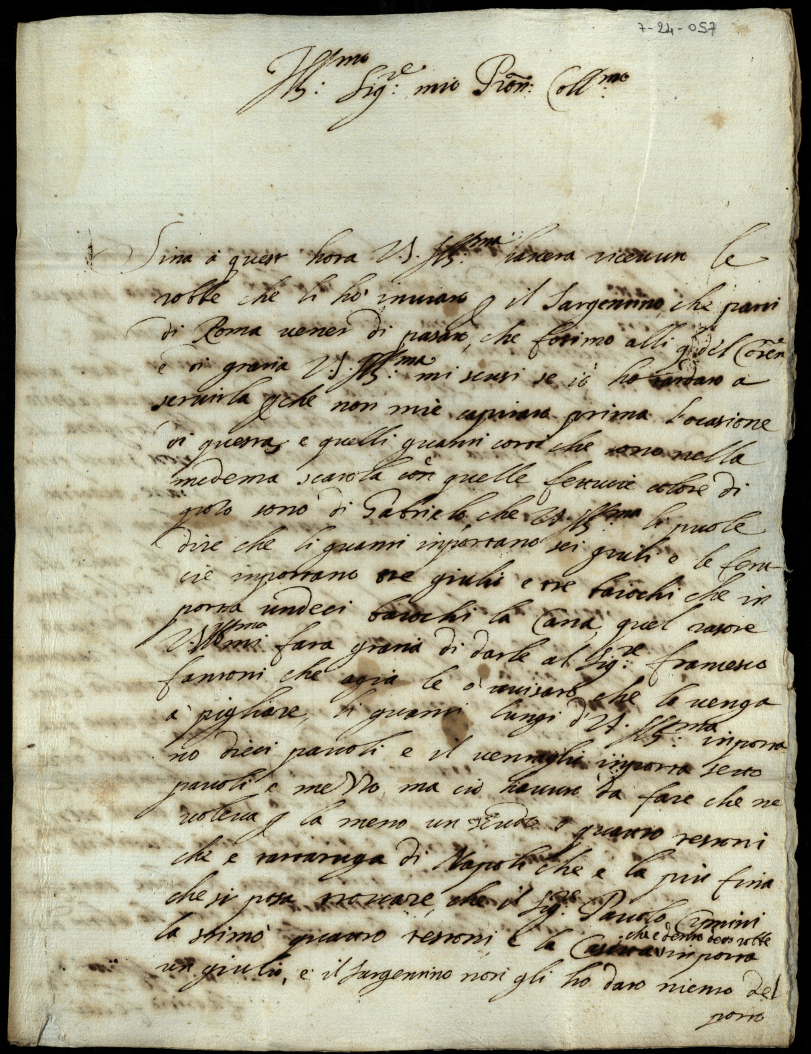 7-24-057
Ill:mo Sig:re mio Pron: Coll:mo
Sina à quest hora V.S. Ill:ma havera riceuuto le
robbe che li hò inuiato p il Sargentino, che parti
di Roma vener di pasato, che fosimo alli 9 del Coren
e di gratia V.S. Ill:ma mi scusi se iò ho tardato a
seruirla pche non miè capitato prima l'ocasione
di questa, e quelli guanti corti che sono nella
medema scatola con quelle fetucie colore di
sono di Gabrielo che V.S. Ill:ma li puole
dire che li guanti inportano sei giuli e le fetu
cie inportano tre giulii e tre baiochi che in
porta undeci baiochi la Cana, quel rasore
V.S. Ill:ma mi fara gratia di darle al Sig:re francesco
fantoni che agia le ò auisato che lo venga
à pigliare, li guanti lungi di V.S. Ill:ma inporta
no dieci pauoli e il ventaglio inporta setto
pauoli e mezzo, ma ciò hauuto da fare che ne
voleua p la meno un scudo o quatro testoni
che è tartaruga di Napoli che è la più fina
che si posa trouare, che il Sig:re Pauolo
la stimò quatro testoni e la inporta
che è dentro
un giulio, e il Sargentino non gli ho dato niento del
porto